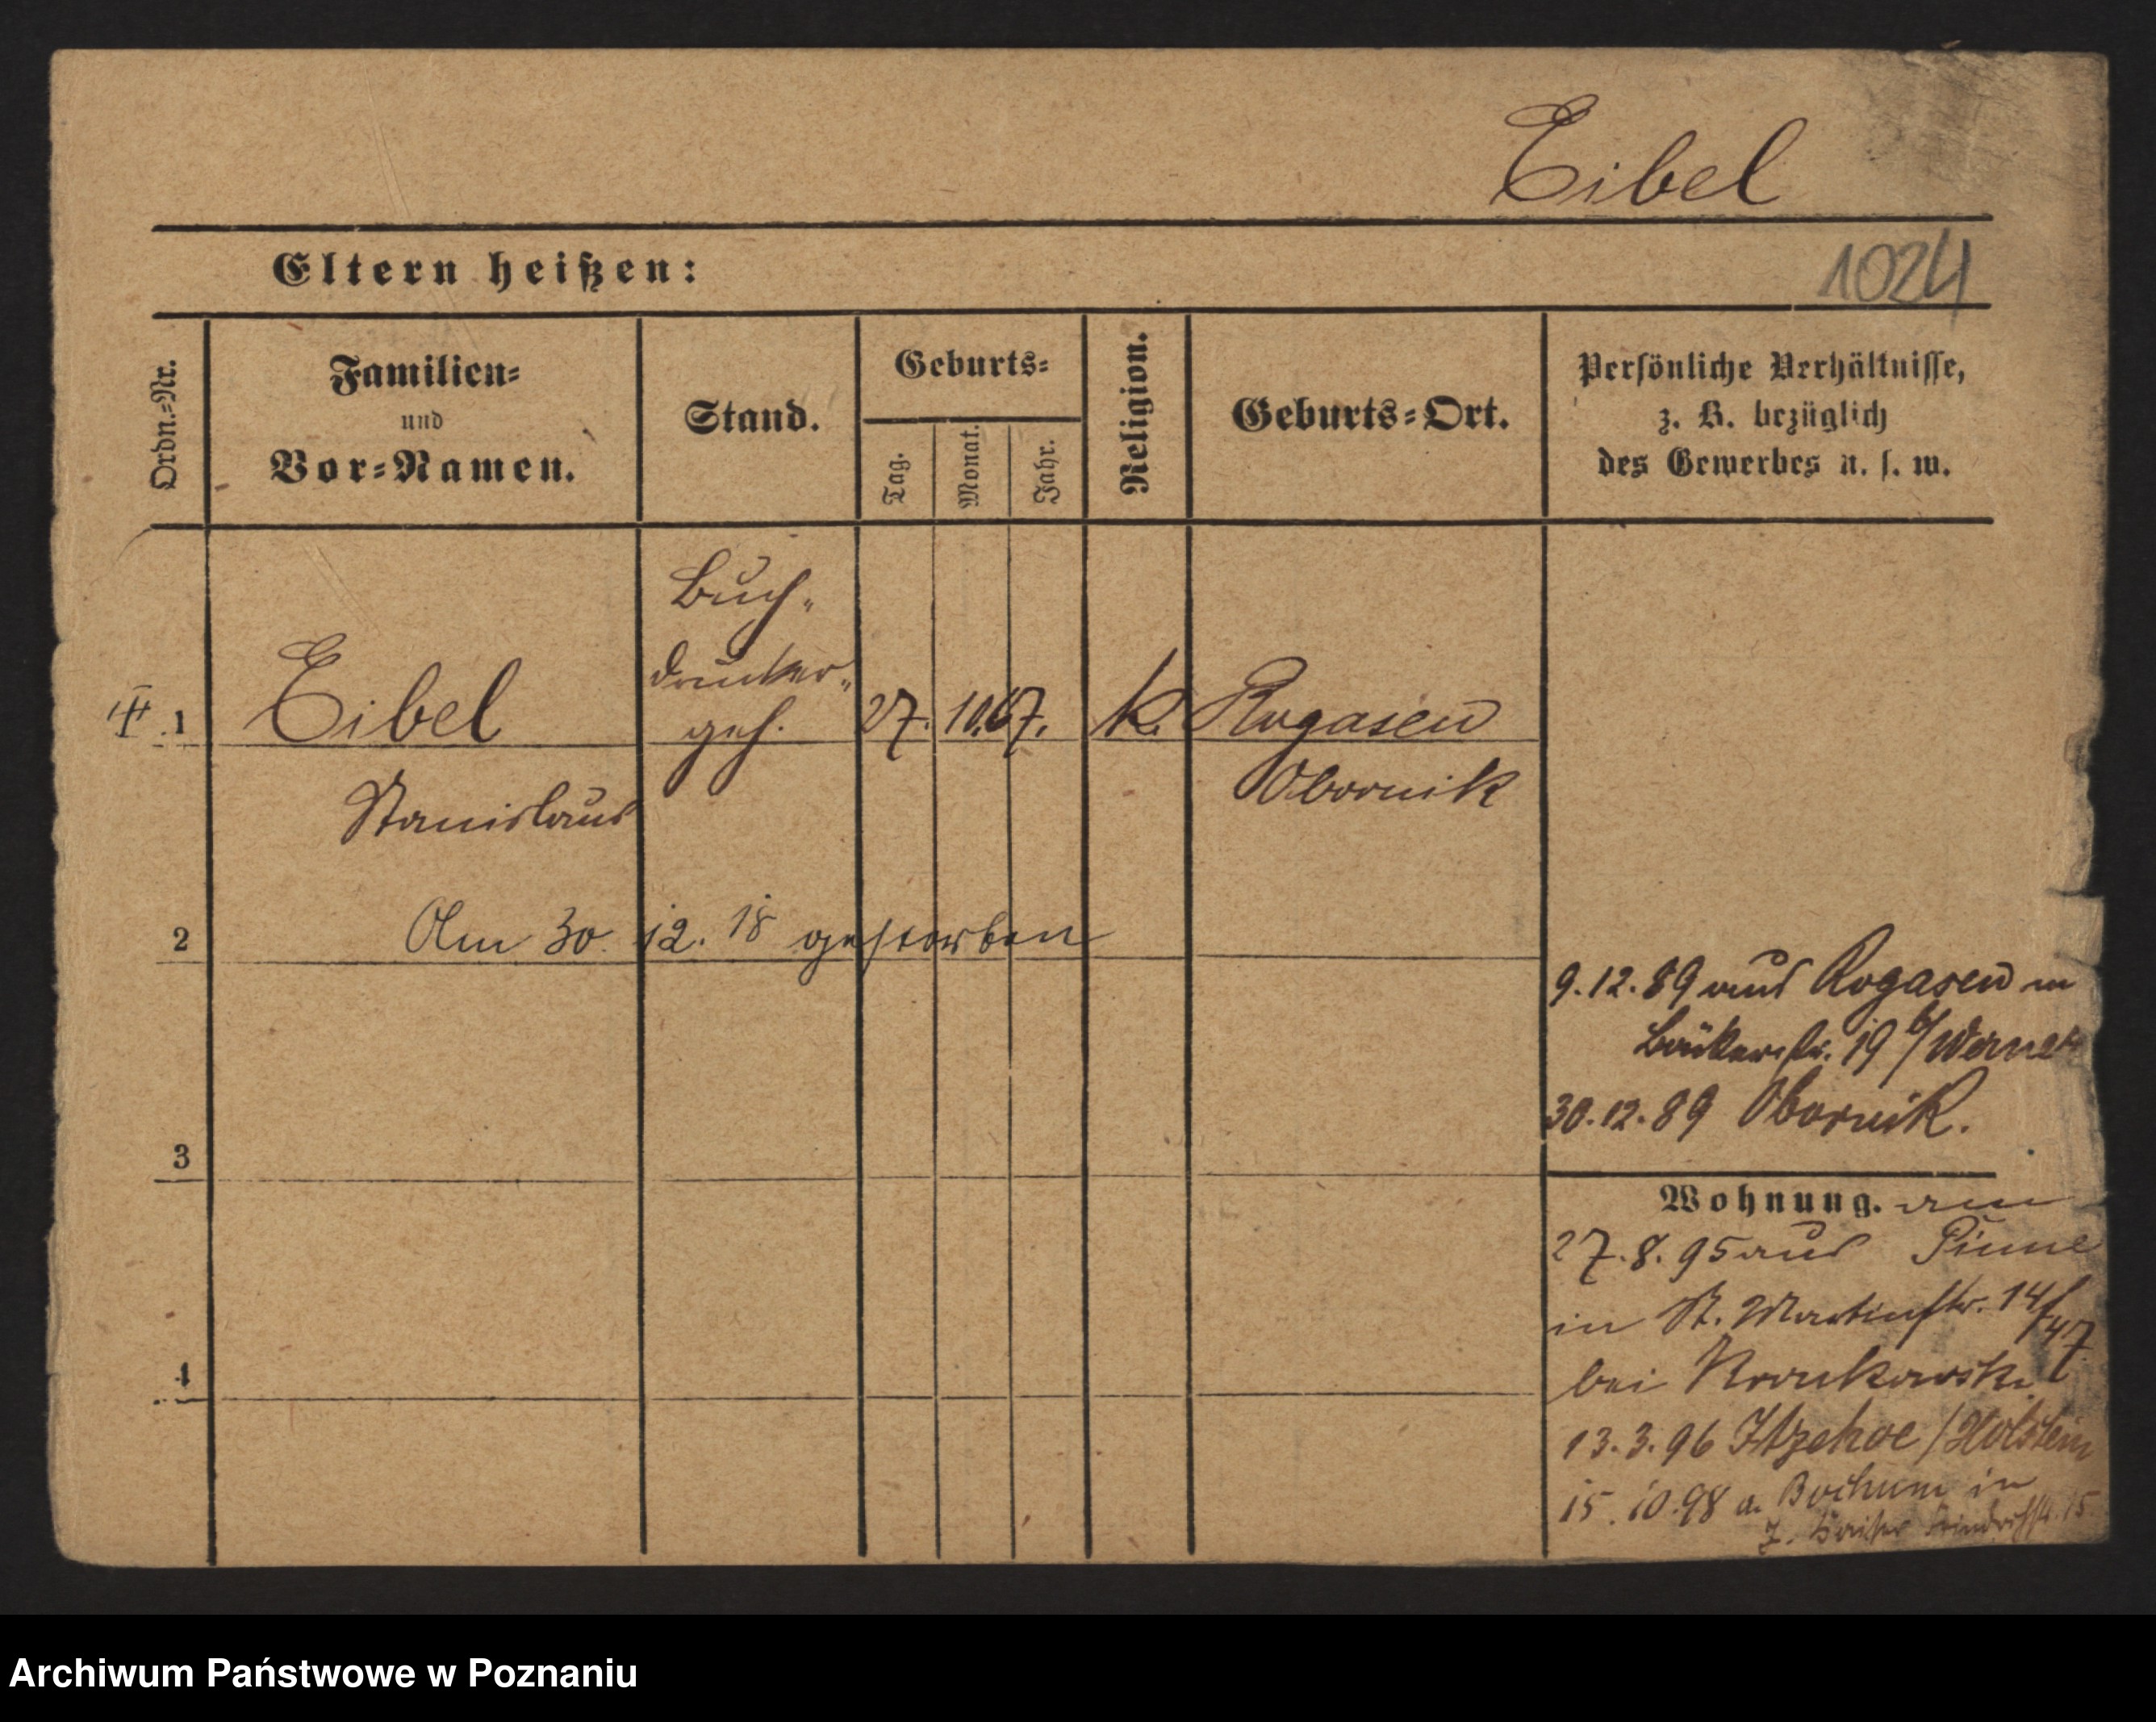 Eibel
Eltern heißen:
1024
Ordn.=Nr.
Familien=
und
Vor=Namen.
Stand.
Geburts=
Tag.
Monat.
Jahr.
Religion.
Geburts=Ort.
Persönliche Verhältnisse,
z. B. bezüglich
des Gewerbes u. s. w.
Buch-
drucker-
geh.
1 Eibel 27. 10. 67. k. Rogasen
Stanislaus Obornik
2 Am 30. 12. 18 gestorben
9.12.89 aus Rogasen in
Bäckerstr. 19 b/ Werner
30.12.89 Obornik.
3
Wohnung. am
27.8.95 aus Pinne
in St. Martinstr. 14/47
bei
4
13.3.96 Itzehoe / Holstein
15.10.98 a. Bochum in
Kaiser Friedrichstr. 15
Archiwum Państwowe w Poznaniu